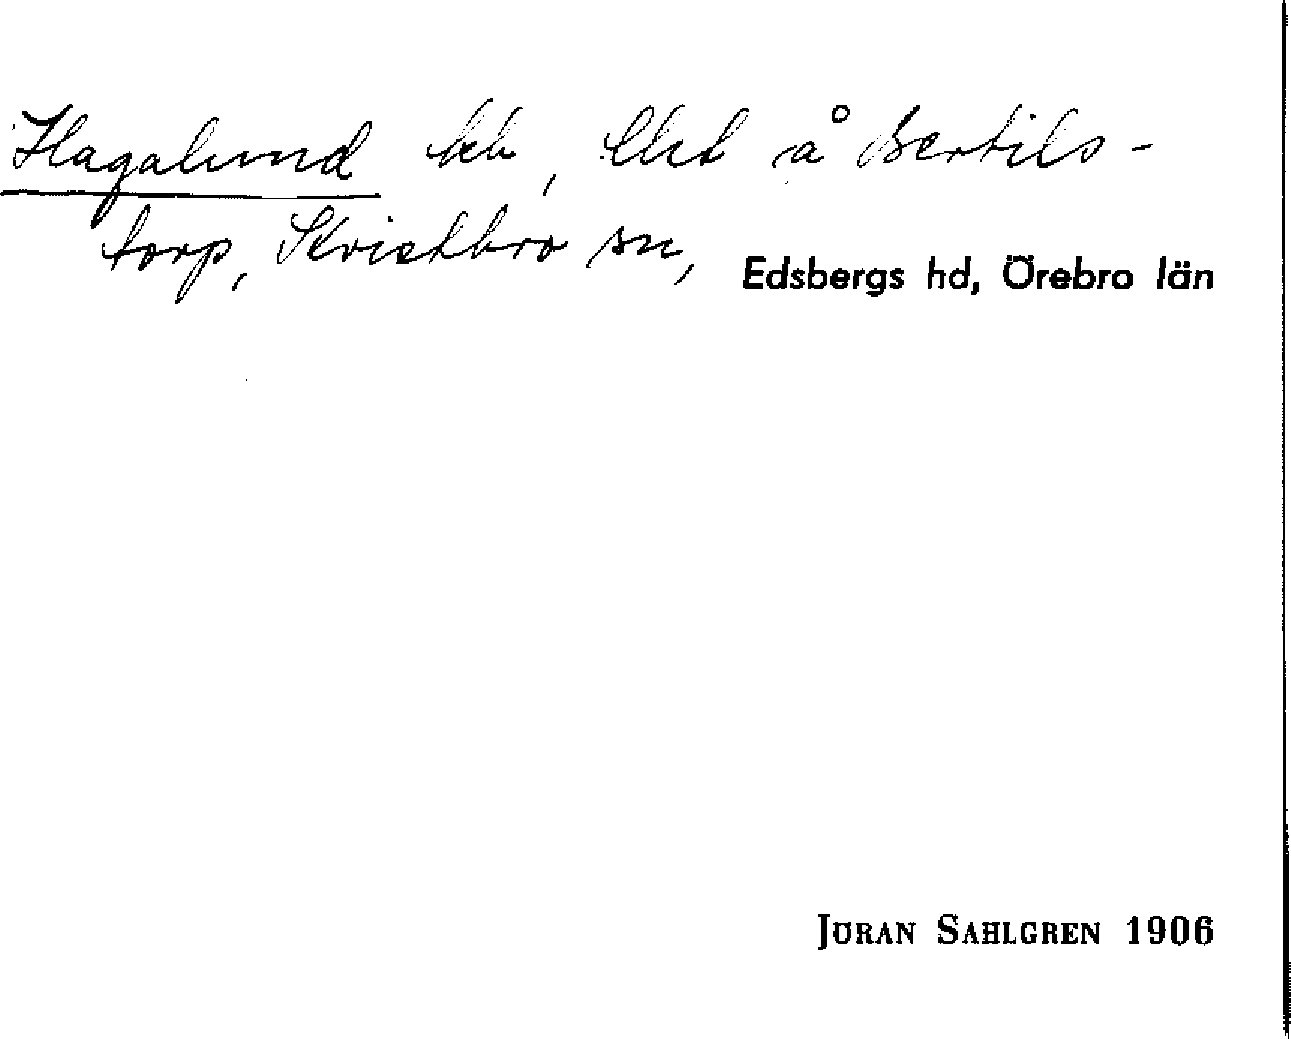 Hagalund beb, lht å Bertils-
torp, Kvistbro sn,
Edsbergs hd, Örebro län
JÖRAN SAHLGREN 1906